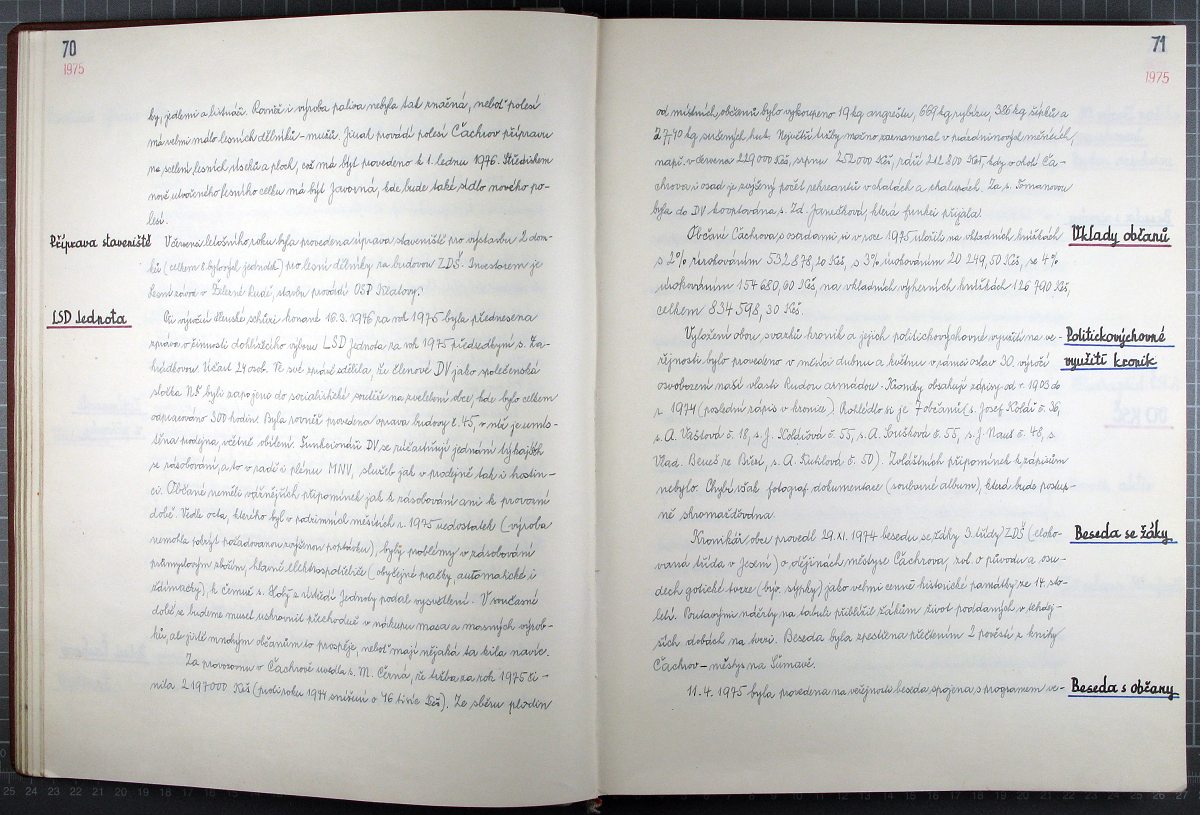 70
1975
by, jedlemi a litnáči. Rovněž i výroba paliva nebyla tak značná, neboť polesí
má velmi málo lesních dělníků – mužů. Jinak provádí polesí Čachrov přípravu
na scelení lesních úseků a ploch, což má být provedeno k 1. lednu 1976. Střediskem
nově utvořeného lesního celku má být Javorná, kde bude také sídlo nového po-
lesí.
Příprava staveniště
V červenci letošního roku byla provedena úprava staveniště pro výstavbu 2 dom-
ků (celkem 8 bytových jednotek) pro lesní dělníky za budovou ZDŠ. Investorem je
lesní závod v Železné Rudě, stavbu provádí OSP Klatovy.
LSD Jednota
Na výroční členské schůzi konané 16.3.1976 za rok 1975 byla přednesena
zpráva o činnosti dohlížecího výboru LSD Jednota za rok 1975 předsedkyní s. Za-
hrádkovou. Účast 24 osob. Ve své zprávě sdělila, že členové DV jako společenská
složka NF byli zapojeni do socialistické soutěže na zvelebení obce, kde bylo celkem
odpracováno 300 hodin. Byla rovněž provedena oprava budovy č. 45, v níž je umís-
těna prodejna, včetně obílení. Funkcionáři DV se zúčastňují jednání týkajících
se zásobování, a to v radě i plénu MNV, služeb jak v prodejně tak i hostin-
ci. Občané neměli vážnějších připomínek jak k zásobování ani k provozní
době. Vedle octa, kterého byl v podzimních měsících r. 1975 nedostatek (výroba
nemohla pokrýt požadovanou zvýšenou poptávku), byly problémy v zásobování
průmyslovým zbožím, hlavně elektrospotřebiče (obyčejné pračky, automatické i
ždímačky), k čemuž s. z ústředí Jednoty podal vysvětlení. V současné
době se budeme muset uskrovnit přechodně v nákupu masa a masných výrob-
ků, ale jistě mnohým občanům to prospěje, neboť mají nějaká ta kila navíc.
Za provozovnu v Čachrově uvedla s. M. Černá, že tržba za rok 1975 či-
nila 2 197 000 Kčs (proti roku 1974 snížení o 46 tisíc Kčs). Ze sběru plodin
71
1975
od místních občanů bylo vykoupeno 19 kg angreštu, 669 kg rybízu, 326 kg šípků a
27,70 kg sušených hub. Největší tržby možno zaznamenat v prázdninových měsících,
např. v červenci 229 000 Kčs, srpnu 252 000 Kčs, září 212 800 Kčs, kdy v okolí Ča-
chrova i osad je zvýšený počet rekreantů v chatách a chalupách. Za s. Tomanovou
byla do DV kooptována s. Zd. Janečková, která funkci přijala.
Vklady občanů
Občané Čachrova s osadami si v roce 1975 uložili na vkladních knížkách
s 2% zúrokováním 532 878,20 Kčs, s 3% zúrokováním 20 249,50 Kčs, se 4%
zúrokováním 154 680,60 Kčs, na vkladních výherních knížkách 126 790 Kčs,
celkem 834 598,30 Kčs.
Politickovýchovné
využití kronik
Vyložení obou svazků kronik a jejich politickovýchovné využití na ve-
řejnosti bylo provedeno v měsíci dubnu a květnu v rámci oslav 30. výročí
osvobození naší vlasti Rudou armádou. Kroniky obsahují zápisy od r. 1903 do
r. 1974 (poslední zápis v kronice). Prohlédlo si je 7 občanů (s. Josef Kolář č. 36,
s. A. Vaštová č. 18, s. J. Kolářová č. 55, s. A. Soustová č. 55, s. J. Nauš č. 48, s.
Vlad. Beneš ze Březí, s. A. č. 50). Zvláštních připomínek k zápisům
nebylo. Chybí však fotograf. dokumentace (souborné album), která bude postup-
ně shromažďována.
Beseda se žáky
Kronikář obce provedl 29. XI. 1974 besedu se žáky 3. třídy ZDŠ (eloko-
vaná třída v Jesení) o dějinách městyse Čachrova, zvl. o původu a osu-
dech gotické tvrze (býv. sýpky) jako velmi cenné historické památky ze 14. sto-
letí. Poutavými náčrty na tabuli přiblížil žákům život poddaných v tehdej-
ších dobách na tvrzi. Beseda byla zpestřena přečtením 2 pověstí z knihy
Čachrov – městys na Šumavě.
Beseda s občany
11.4.1975 byla provedena na veřejnosti beseda spojená s programem ve-